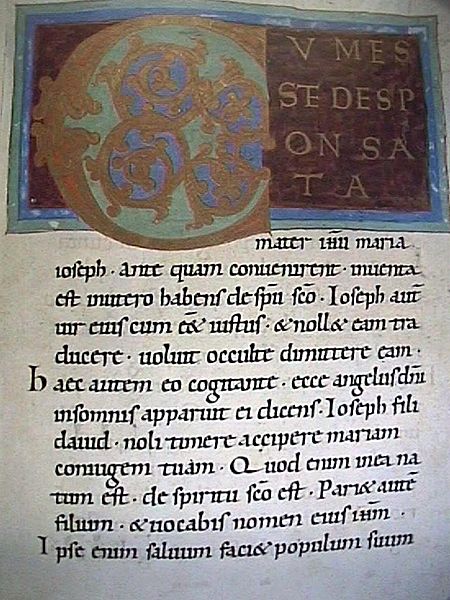 CVM ES
SE DESP
ON SA
TA
mater ihu maria
ioseph · Ante quam convenirent · inventa
est in utero habens de spu sco · Ioseph aut
vir eius cum eet iustus · & noll& eam tra
ducere · voluit occulte dimittere eam ·
haec autem eo cogitante · ecce angelus dni
in somnis apparuit ei dicens · Ioseph fili
david · noli timere accipere mariam
coniugem tuam · Quod enim in ea na
tum est · de spiritu sco est · Pari& aute
filium · & vocabis nomen eius ihm ·
Ipse enim salvum faci& populum suum